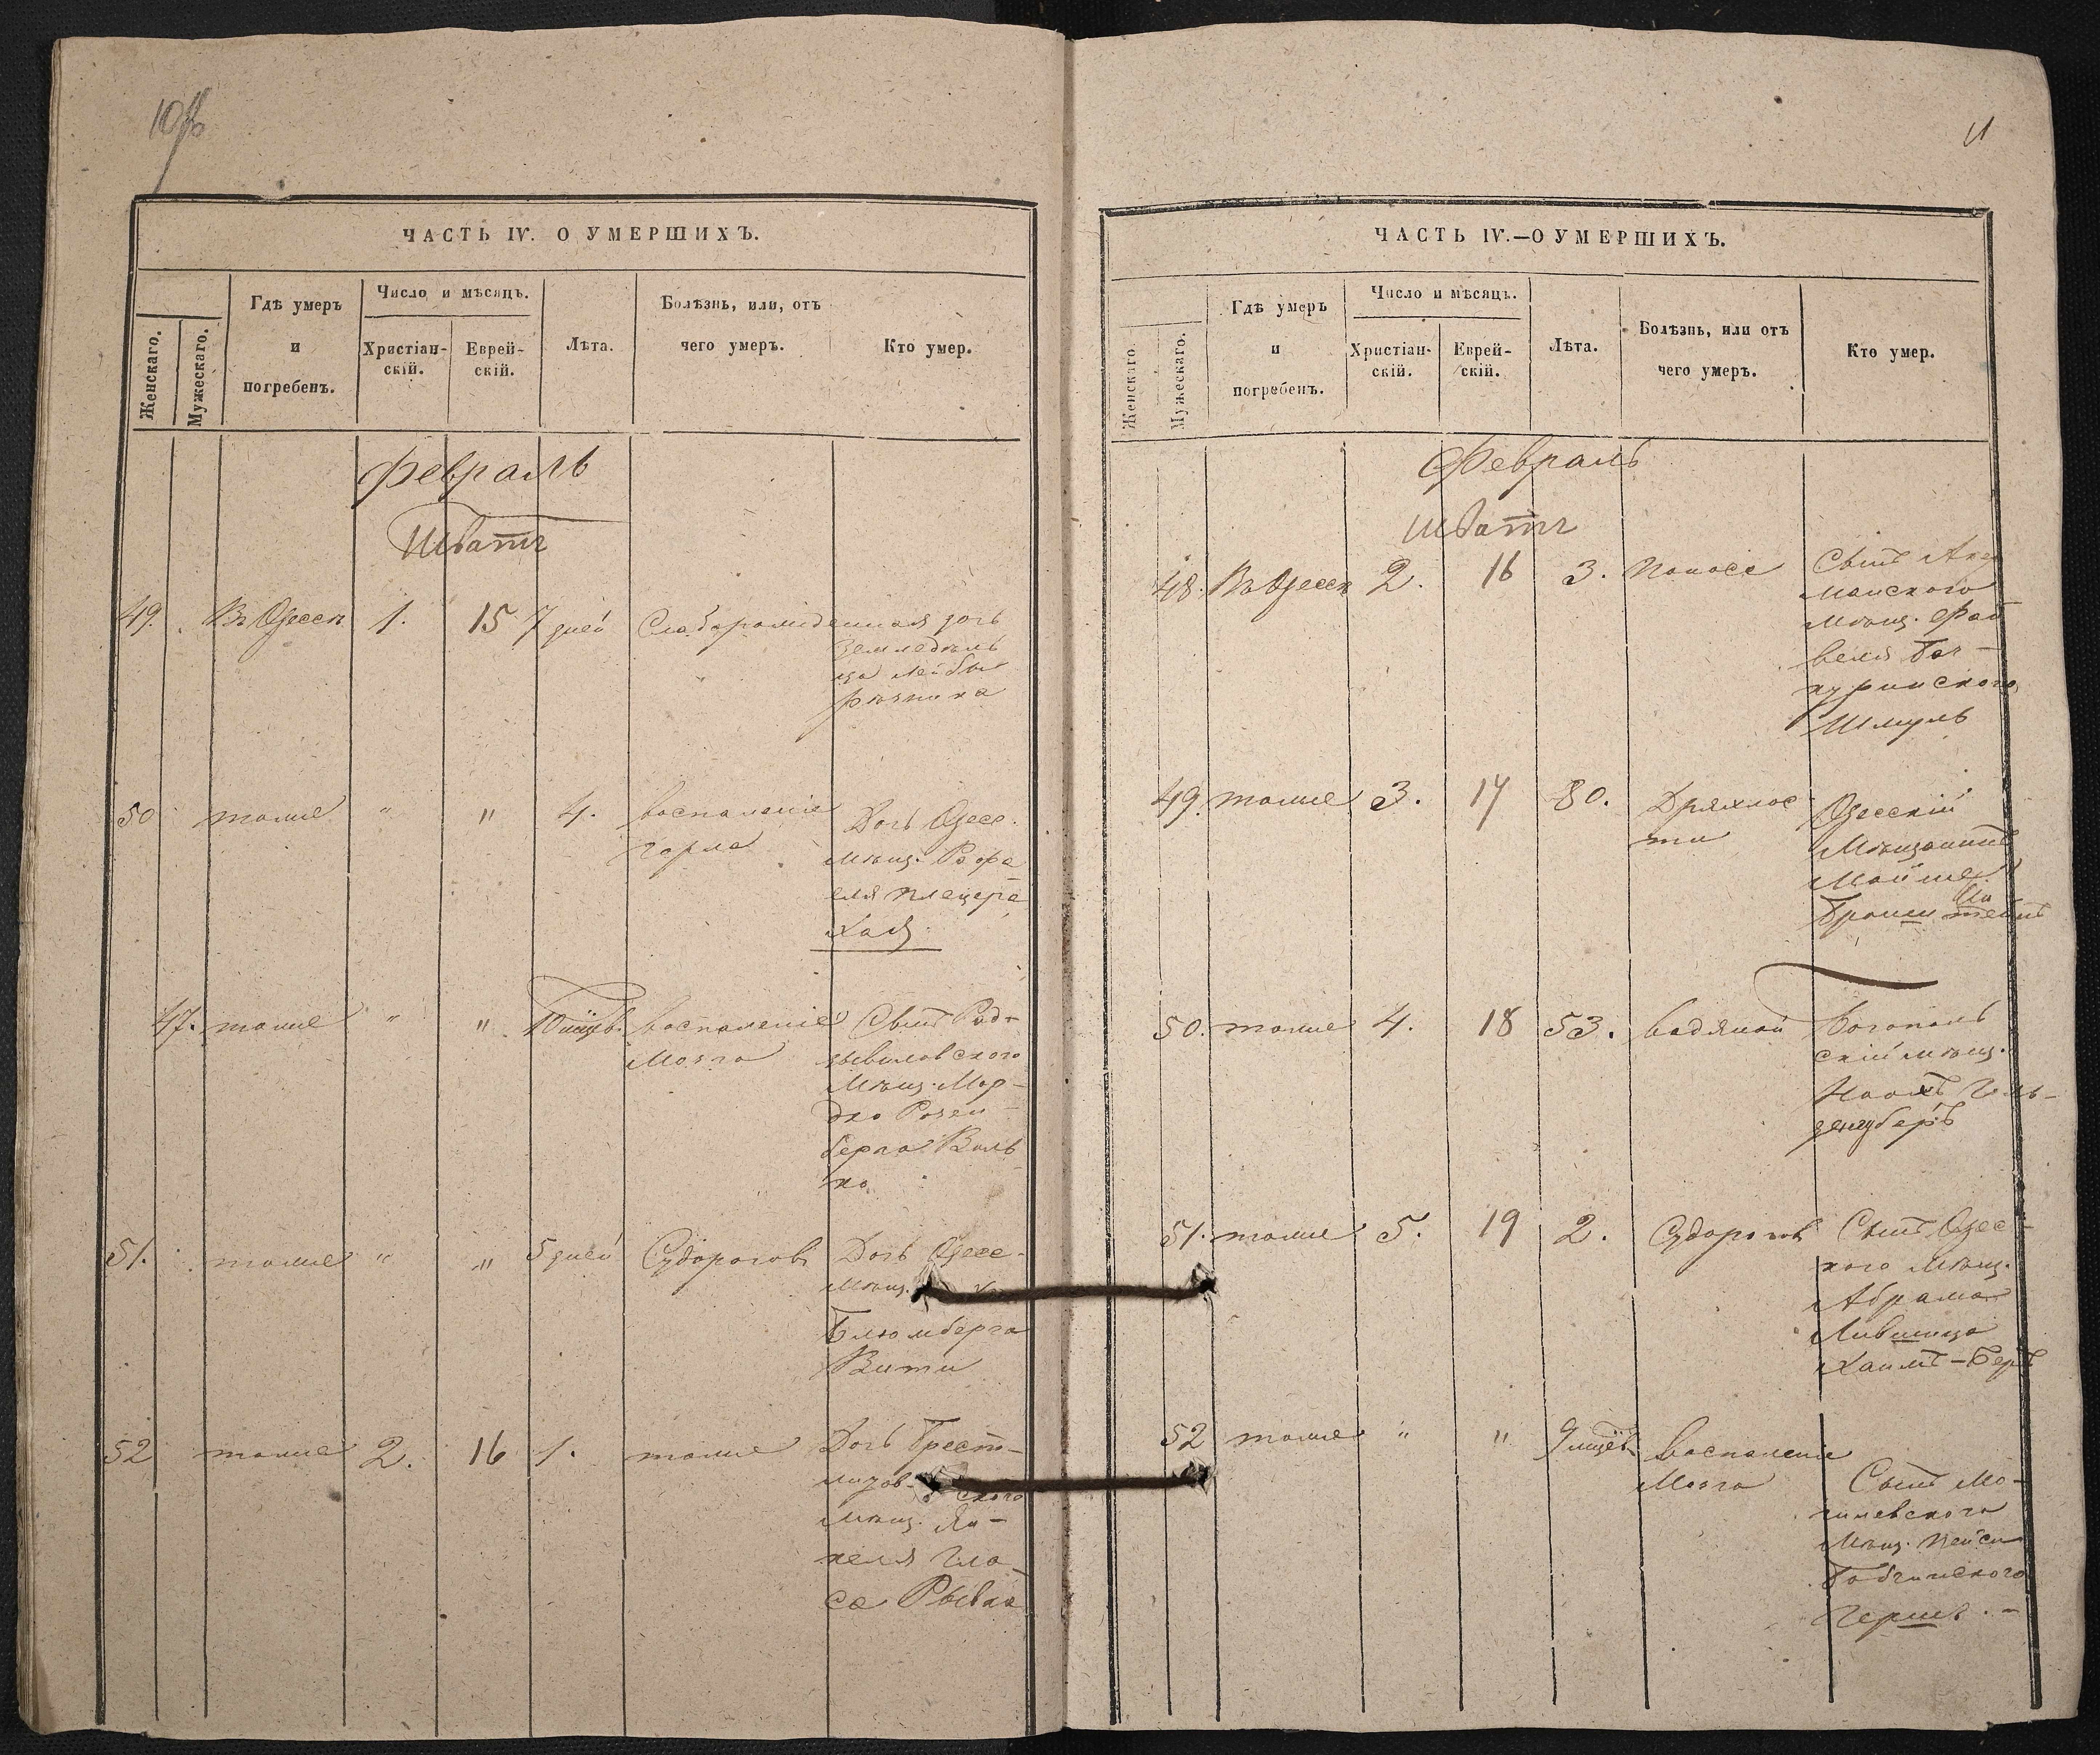 10об
ЧАСТЬ IV. О УМЕРШИХЪ.
Женскаго.
Мужескаго.
Гдѣ умеръ
и
погребенъ.
Число и мѣсяцъ.
Христіан-
скій.
Еврей-
скій.
Лѣта.
Болѣзнь, или, отъ
чего умеръ.
Кто умер.
Февраль
Шватъ
49. Въ Одессѣ 1. 15 7 дней Слаборожденная дочь
Земледѣль
ца Лейбы
Рѣзника
50 тоже " " 4. воспаленіе
горла
Дочь Одесс.
мѣщ. Рафа
еля Плецера
Хая.
47. тоже " " 10 мцвъ воспаленіе
мозга
Сынъ Рад-
зывиловскаго
мѣщ. Мор-
дко Розен-
берга Воль
ко
51. тоже " " 5 дней Судорогов
Дочь Одесс-
мѣщ.
Блюмберга
Вити
52 тоже 2. 16 1. тоже
Дочь Брест-
литов- скаго
мѣщ. Ян-
келя Гла
са Рывка
11
ЧАСТЬ IV.—О УМЕРШИХЪ.
Женскаго.
Мужескаго.
Гдѣ умеръ
и
погребенъ.
Число и мѣсяцъ.
Христіан-
скій.
Еврей-
скій.
Лѣта.
Болѣзнь, или отъ
чего умеръ.
Кто умер.
Февраль
Шватъ
48. Въ Одессѣ 2. 16 3. Поноса
Сынъ Акер
манскаго
мѣщ. Фай
веля
Шмуль
49. тоже 3. 17 80. Дряхлос
ти
Одесскій
Мѣщанинъ
Мойше
Бронштейнъ
50. тоже 4. 18 53. водяной
Богополь
скій мѣщ.
Голь-
денберъ
51. тоже 5. 19 2. Судорогов
Сынъ Одес-
каго мѣщ.
Абрама
Лившица
Хаимъ-Беръ
52 тоже " " 9 мцвъ воспаленіе
мозга
Сынъ Мо-
гилевскаго
мѣщ. Пейси
Бабчинскаго
Гершъ.-